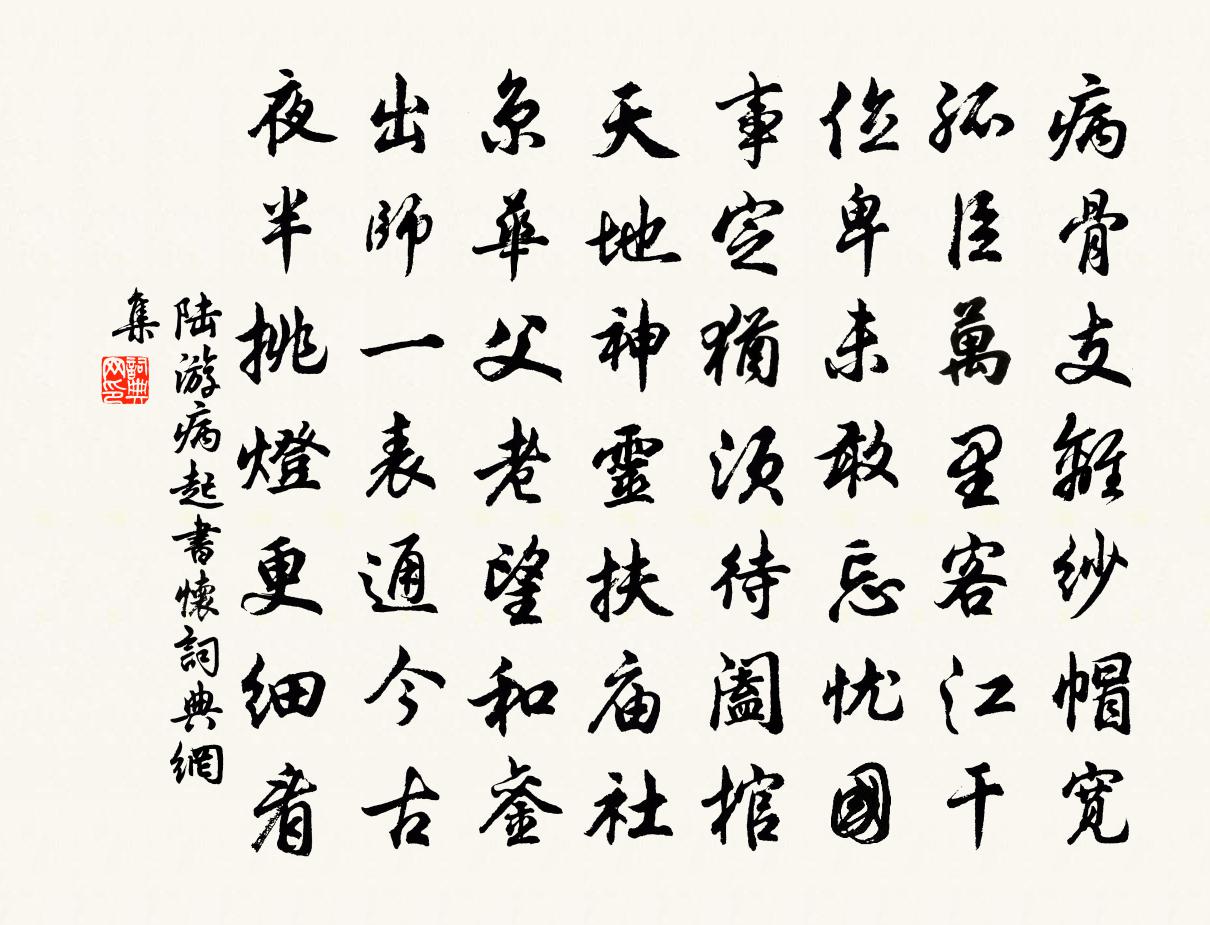 病骨支離紗帽寬
孤臣萬里客江干
位卑未敢忘忧國
事定猶須待闔棺
天地神靈扶庙社
京華父老望和銮
出師一表通今古
夜半挑燈更細看
陸游病起書懷詞典網
集
詞典
网印